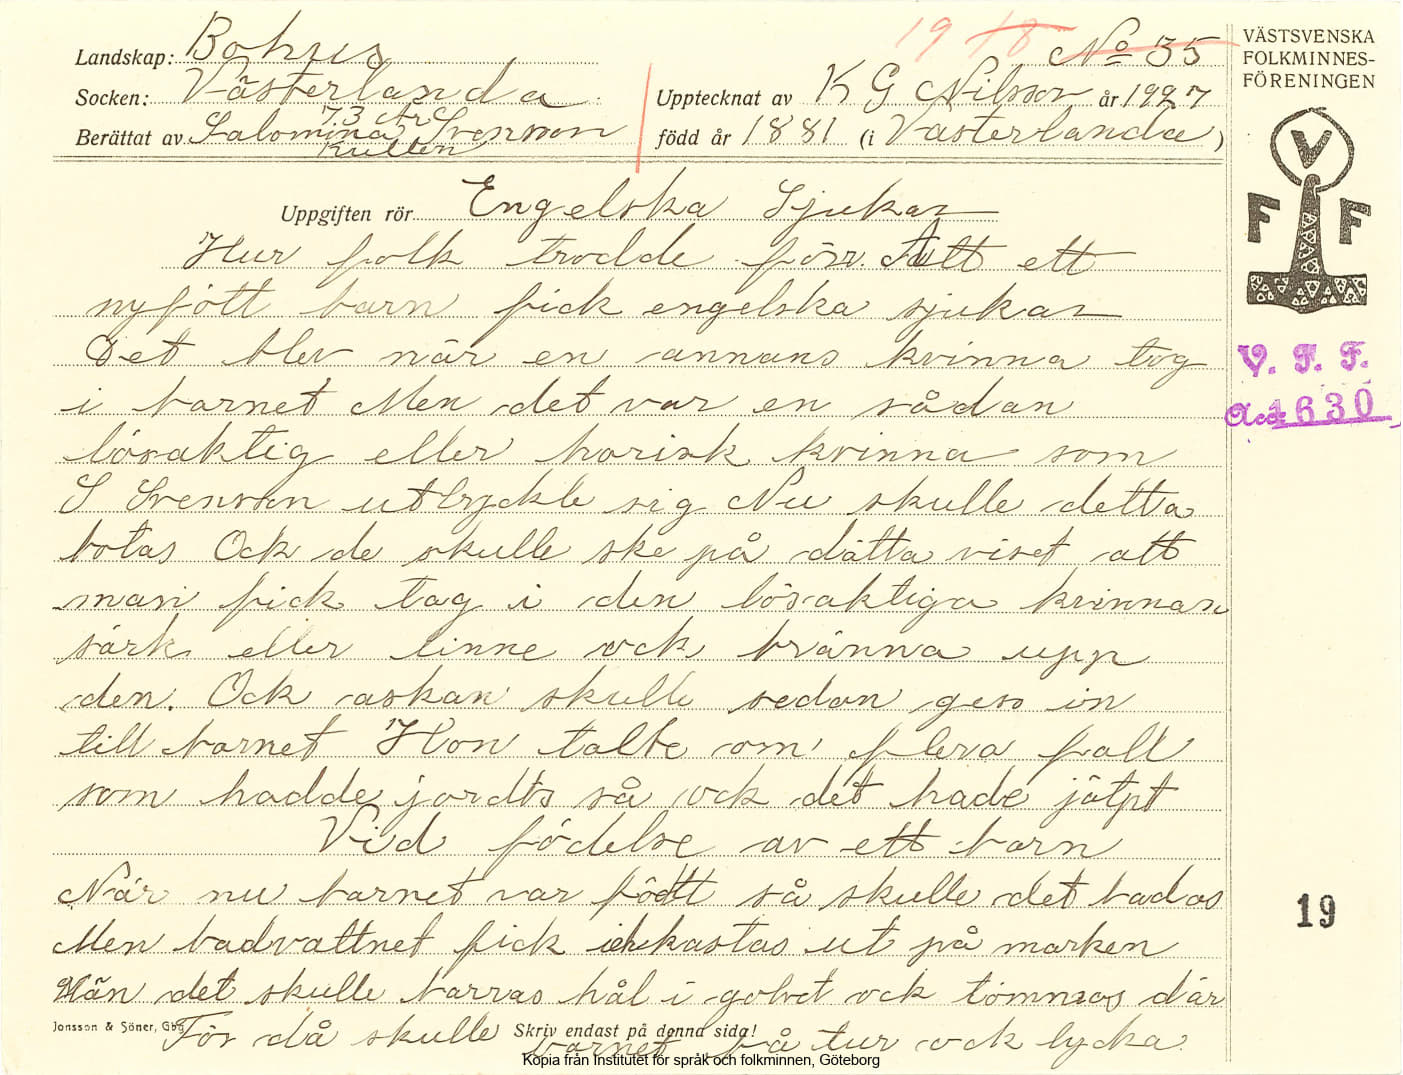 Landskap: Bohus
Socken: Västerlanda
Berättat av Salomina Svenson
73 År
Kullen
19 18 No 35
Upptecknat av K G Nilsson år 1927
född år 1881 (i Västerlanda)
VÄSTSVENSKA
FOLKMINNES-
FÖRENINGEN
V
F F
V. F. F.
Acc 1630
Uppgiften rör Engelska Sjukan
Hur folk trodde förr. Att ett
nyfött barn fick engelska sjukan
Det blev när en annans kvinna tog
i barnet Men det var en sådan
lösaktig eller horisk kvinna som
S Svenson uttryckte sig Nu skulle detta
botas Ock de skulle ske på dätta viset att
man fick tag i den lösaktiga kvinnan
särk eller linne ock bränna upp
den. Ock askan skulle sedan ges in
till barnet Hon talte om flera fall
som hadde jordts så ock det hade jälpt
Vid födelse av ett barn
När nu barnet var födtt så skulle det badas
Men badvattnet fick icke kastas ut på marken
Utän det skulle barras hål i golvet ock tömmas där
För då skulle barnet få tur ock lycka.
19
Jonsson & Söner, Gbg
Skriv endast på denna sida!
Kopia från Institutet för språk och folkminnen, Göteborg